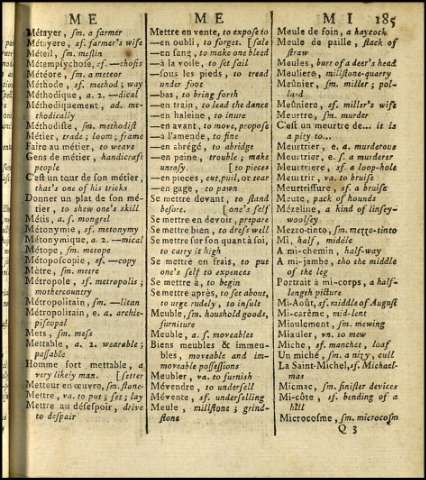 M E
M E
M I 185
Métayer, sm. a farmer
Métayere, sf. farmer's wife
Méteil, sm. meslin
Métempsychose, sf. —chosis
Météore, sm. a meteor
Méthode, sf. method; way
Méthodique, a. 2. —dical
Méthodiquement, ad. me-
thodically
Méthodiste, sm. methodist
Métier, trade; loom; frame
Faire au métier, to weave
Gens de métier, handicraft
people
C'est un tour de son métier,
that's one of his tricks
Donner un plat de son mé-
tier, to shew one's skill
Métis, a. s. mongrel
Métonymie, sf. metonymy
Métonymique, a. 2. —mical
Métope, sm. metope
Métoposcopie, sf. —copy
Mètre, sm. metre
Métropole, sf. metropolis;
mothercountry
Métropolitain, sm. —litan
Métropolitain, e. a. archie-
piscopal
Mets, sm. mess
Mettable, a. 2. wearable;
passable
Homme fort mettable, a
very likely man. [setter
Metteur en œuvre, sm. stone-
Mettre, va. to put; set; lay
Mettre au désespoir, drive
to despair
Mettre en vente, to expose to
—en oubli, to forget. [sale
—en sang, to make one bleed
—à la voile, to set sail
—sous les pieds, to tread
under foot
—bas, to bring forth
—en train, to lead the dance
—en haleine, to inure
—en avant, to move, propose
—à l'amende, to fine
—en abrégé, to abridge
—en peine, trouble; make
uneasy. [to pieces
—en pieces, cut, pull, or tear
—en gage, to pawn
Se mettre devant, to stand
before. [one's self
Se mettre en devoir, prepare
Se mettre bien, to dress well
Se mettre sur son quant à soi,
to carry it high
Se mettre en frais, to put
one's self to expences
Se mettre à, to begin
Se mettre après, to set about,
to urge rudely, to insult
Meuble, sm. houshold goods,
furniture
Meuble, a. s. moveables
Biens meubles & immeu-
bles, moveable and im-
moveable possessions
Meubler, va. to furnish
Mévendre, to undersell
Mévente, sf. underselling
Meule, millstone; grind-
stone
Meule de foin, a haycock
Meule de paille, stack of
straw
Meules, burr of a deer's head
Meuliere, millstone-quarry
Meûnier, sm. miller; pol-
lard
Meûniere, sf. miller's wife
Meurtre, sm. murder
C'est un meurtre de... it is
a pity to...
Meurtrier, e. a. murderous
Meurtrier, e. s. a murderer
Meurtriere, sf. a loop-hole
Meurtrir, va. to bruise
Meurtrissure, sf. a bruise
Meute, pack of hounds
Mézeline, a kind of linsey-
woolsey
Mezzo-tinto, sm. mezzo-tinto
Mi, half, middle
A mi-chemin, half-way
A mi-jambe, tho the middle
of the leg
Portrait à mi-corps, a half-
length picture
Mi-Août, sf. middle of August
Mi-carême, mid-lent
Miaulement, sm. mewing
Miauler, vn. to mew
Miche, sf. manchet, loaf
Un miché, sm. a nizy, cull
La Saint-Michel, sf. Michael-
mas
Micmac, sm. sinister devices
Mi-côte, sf. bending of a
hill
Microcosme, sm. microcosm
Q 3